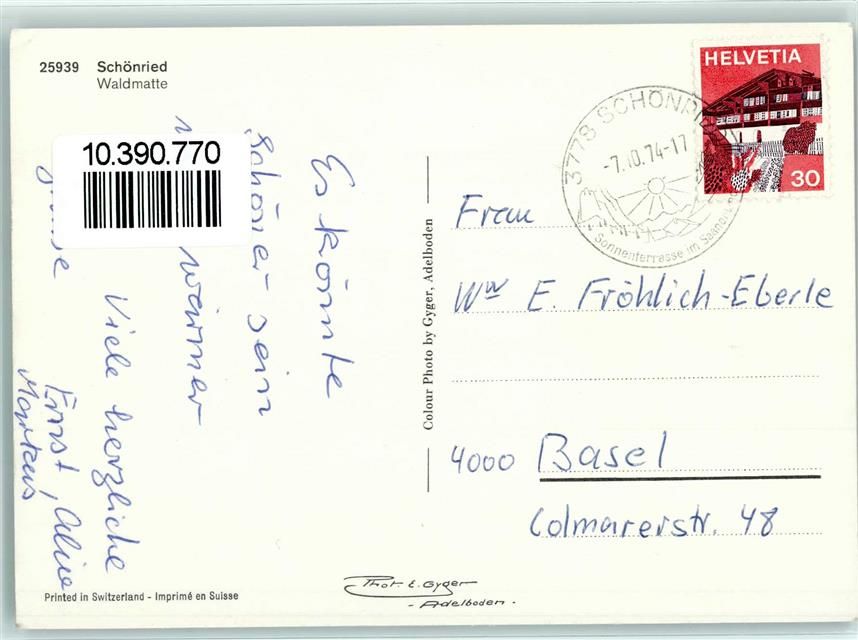 25939 Schönried
Waldmatte
10.390.770
Es könnte
schöner sein
wärmer
Viele herzliche
Ernst, Aline
Markus
Colour Photo by Gyger, Adelboden
HELVETIA
30
3778 SCHÖNRIED
-7.10.74-17
Sonnenterrasse im Saanenland
Frau
Ww E. Fröhlich-Eberle
4000 Basel
Colmarerstr. 48
Printed in Switzerland - Imprimé en Suisse
Phot. E. Gyger
- Adelboden -